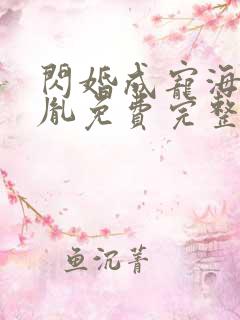 閃婚成寵海
胤免費完整
鱼沉菁